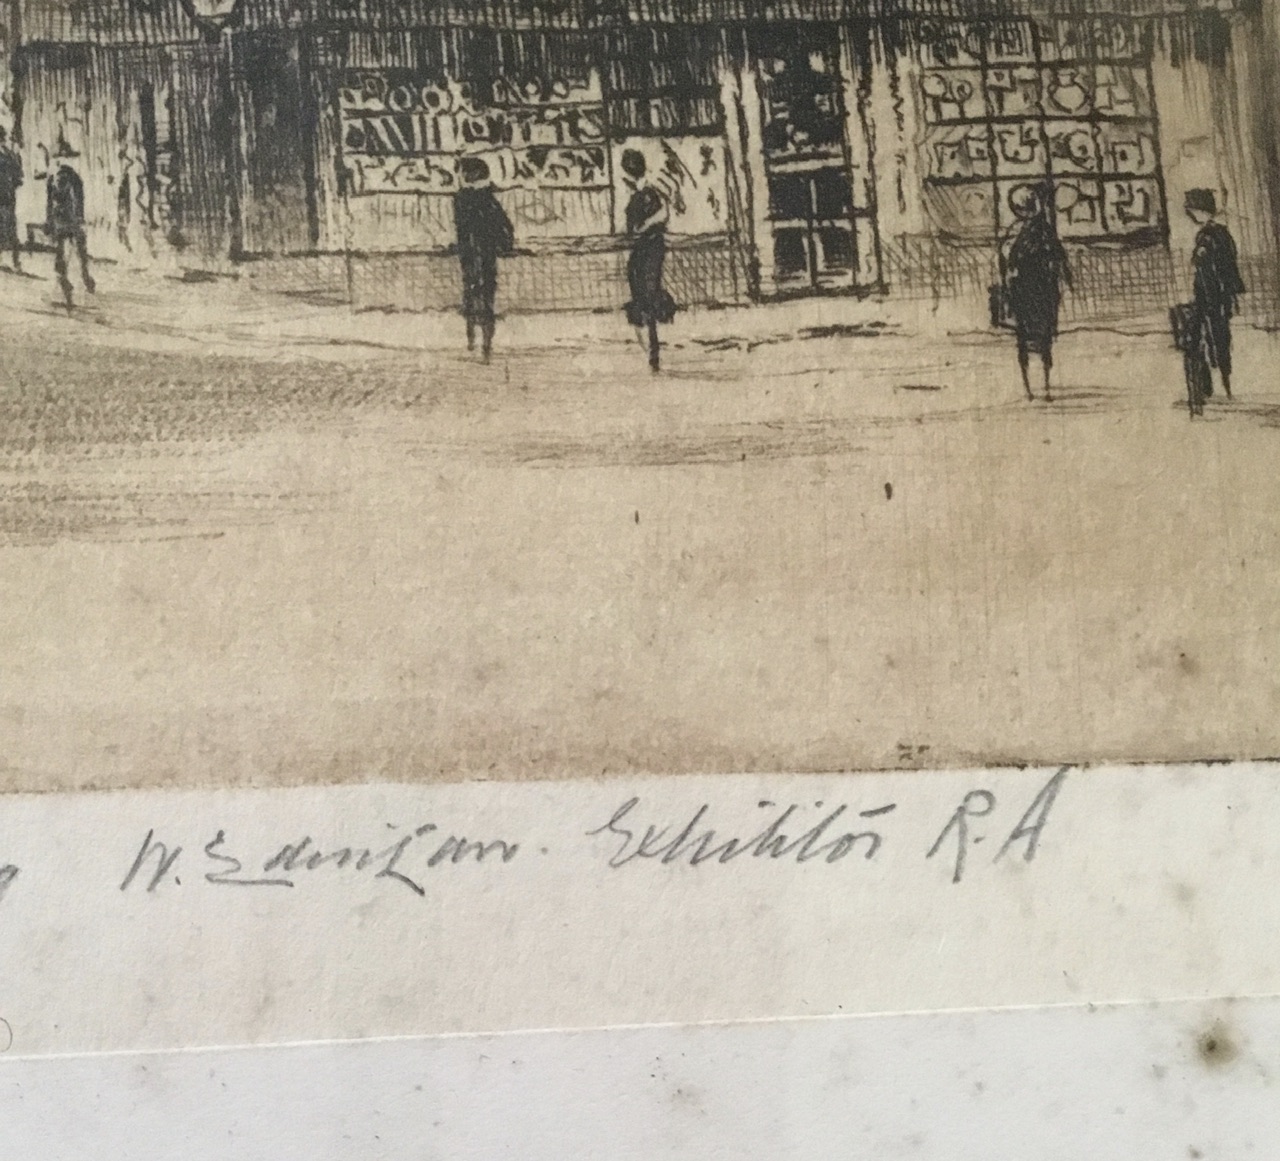 W. Edwin Law. Exhibitor R.A